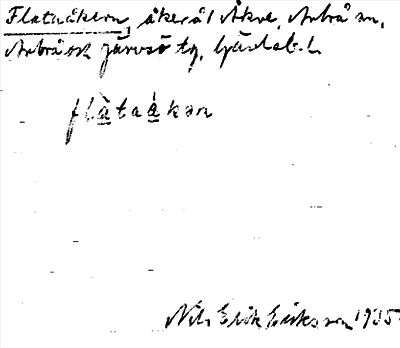 Flataåkern, åker å l Åkre, Arbrå sn,
Arbrå och Järvsö tg,
flàtaåkɘn
Nils Erik Eriksson 1935